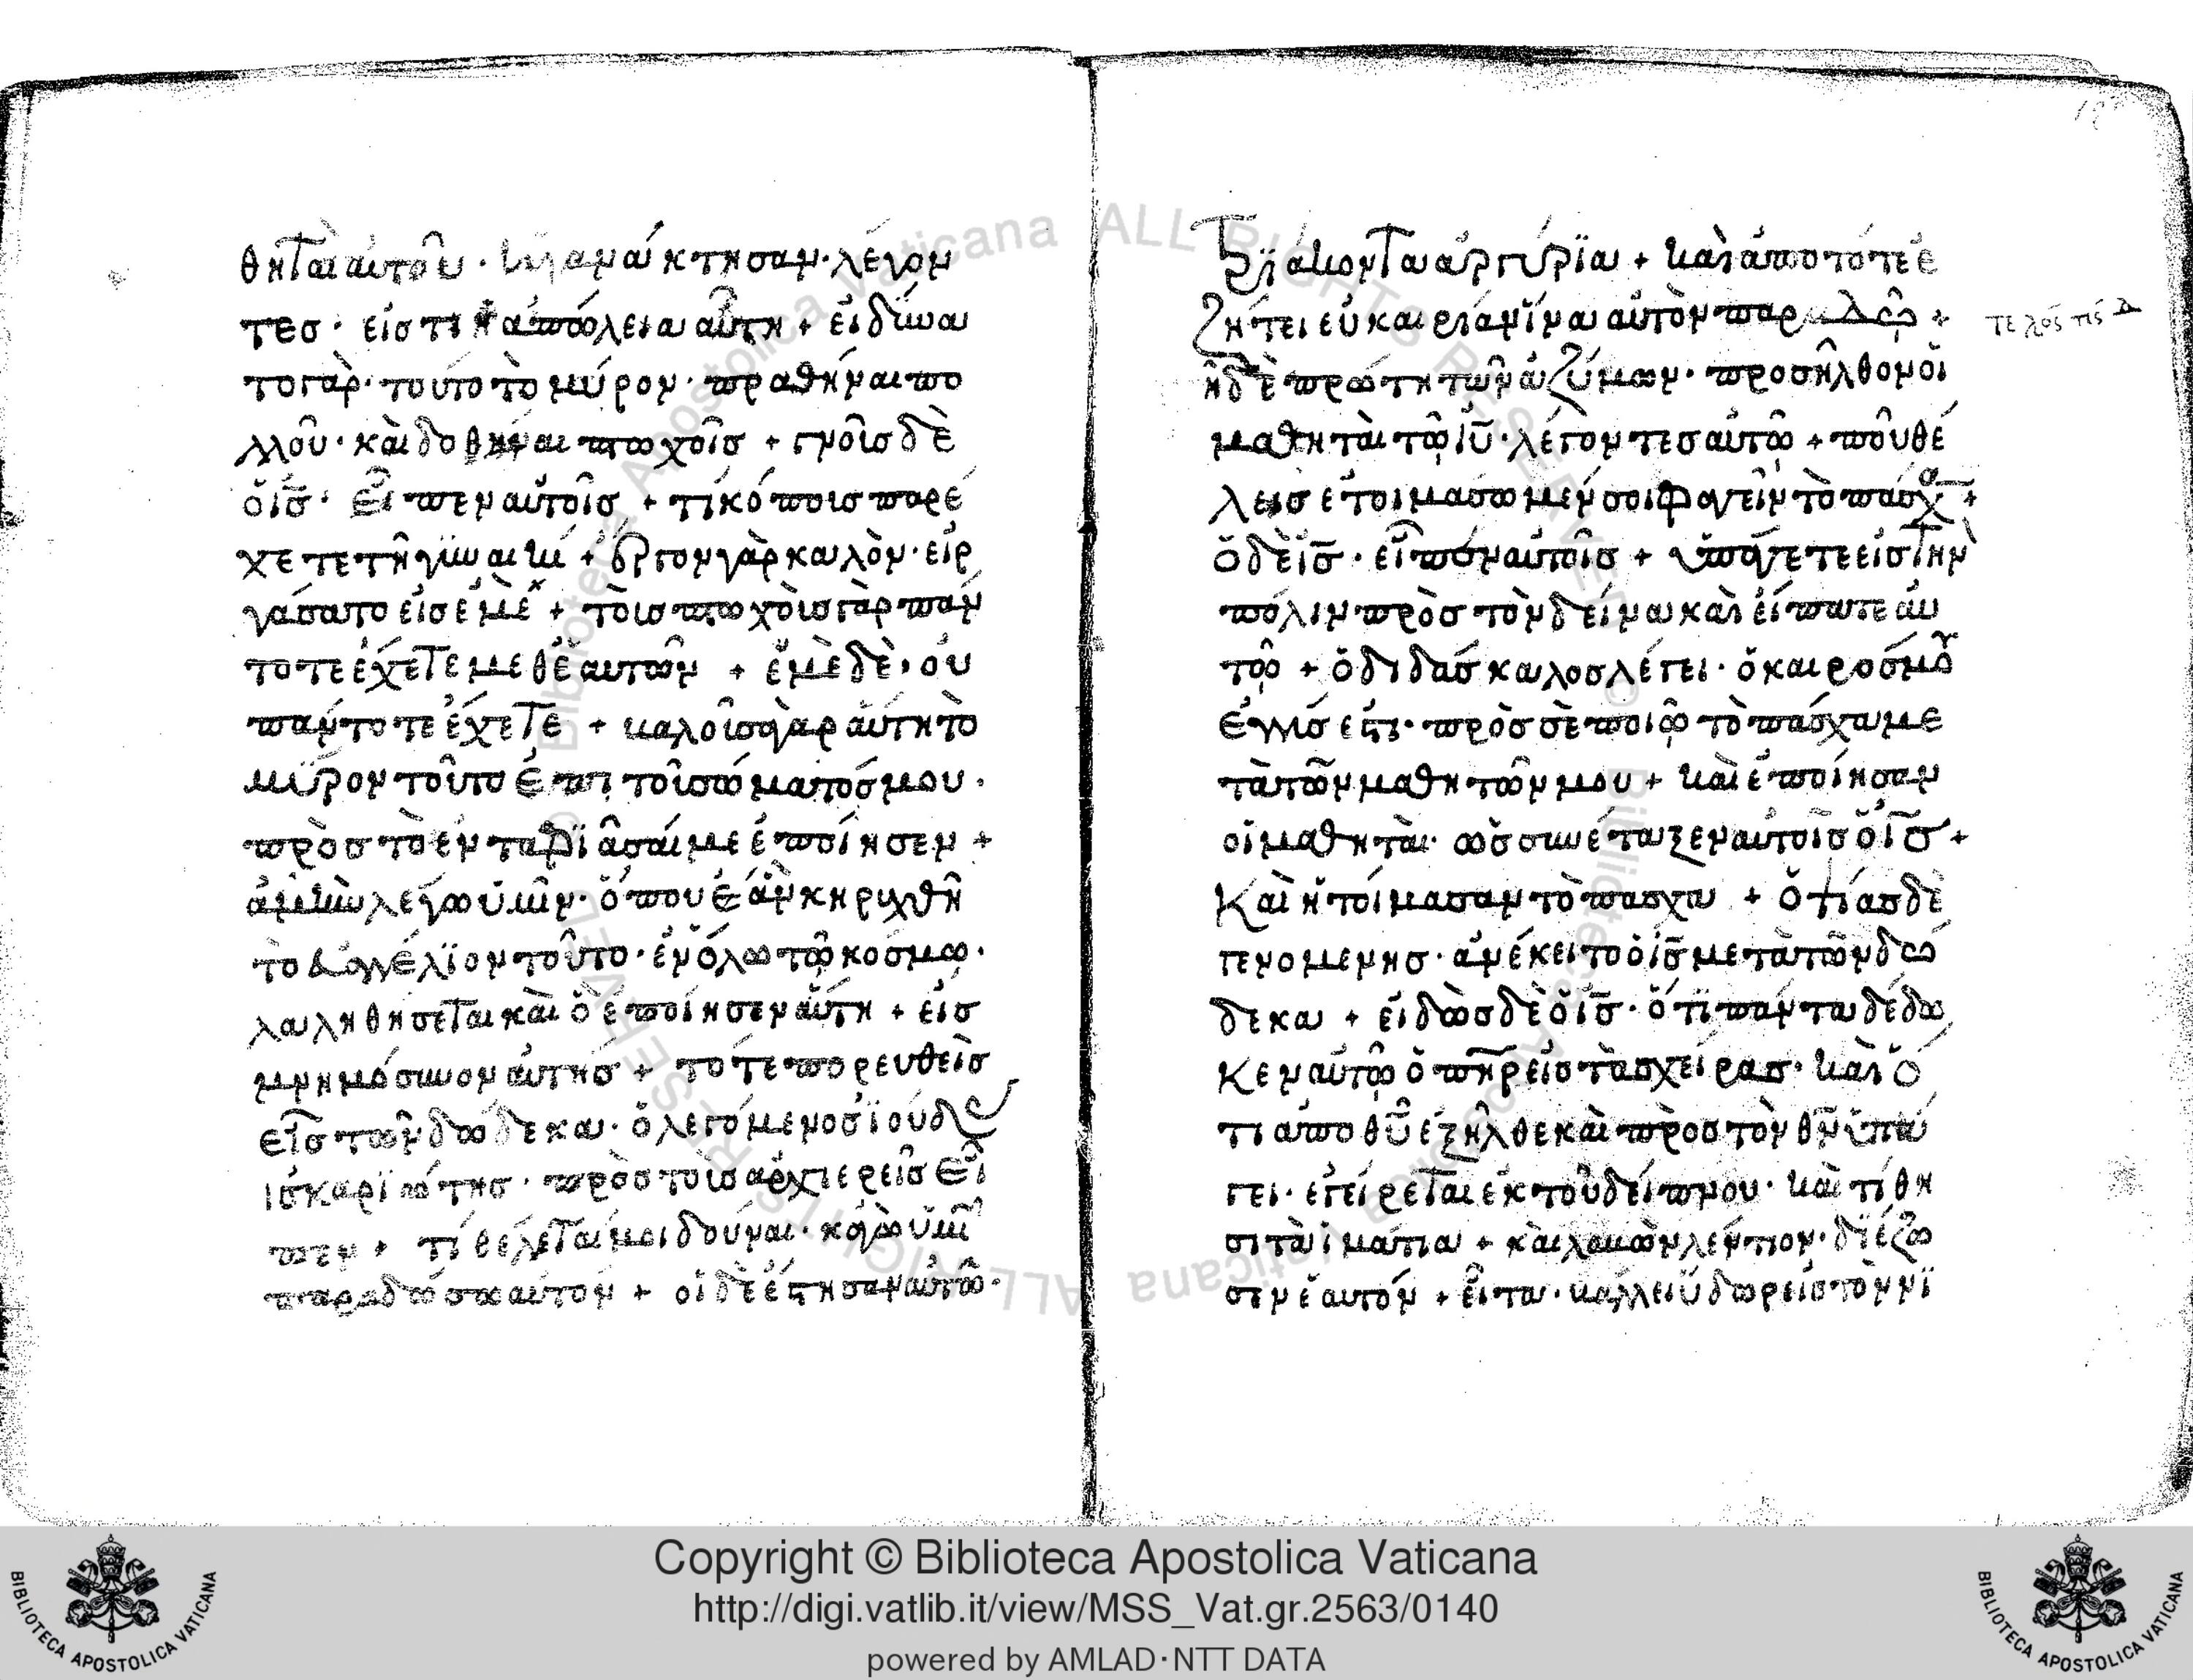 θηταὶ αὐτοῦ · ἠγανάκτησαν · λέγον
τεσ · εἰσ τί ἡ ἀπώλεια αὕτη + ἐιδύνα
το γὰρ · τοῦτο τὸ μύρον · πραθῆναι πο
λλοῦ · καὶ δοθῆναι πτωχοῖσ + γνοῖσ δὲ
ὁ ι̅σ̅ · εἶπεν αὐτοῖσ + τί κόποισ παρέ
χετε τῆ γϋναικί + ἔργον γὰρ καλὸν · εἰρ
γάσατο εἰσ ἐμέ + τοὶσ πτωχοὶσ γὰρ πάν
τοτε ἔχετε μεθ ἑαυτῶν + ἐμὲ δὲ, οὐ
πάντοτε ἔχετε + καλοῖσ γὰρ αὕτη τὸ
μϋρον τοῦτο ἐπι τοῖ σώματόσ μου ·
πρὸσ τὸ ἐνταφϊᾶσαί με ἐποίησεν +
ἀμὴν λέγω ὑμῖν · ὅπου ἐὰν κηρυχθῆ
τὸ εὐαγγέλϊον τοῦτο · ἐν ὅλω τῶ κόσμω ·
λαληθήσεται καὶ ὃ ἐποίησεν αὕτη + εἰσ
μνημόσυνον αὐτῆσ + τότε πορευθεὶσ
εἷσ τῶν δώδεκα · ὁ λεγόμενοσ ϊούδασ
ισκαριώτησ · πρὸσ τοὶσ αρχιερεῖσ εἶ
πεν + τί θέλεται μοι δούναι · καγὼ ὑμῖ
παραδώσω αὐτον + οἱ δὲ ἔστησαν αὐτῶ ·
τριάκοντα ἀργύρϊα + καὶ ἀπο τότε ἐ
ζήτει ευκαιρίαν ἵνα αὐτὸν παραδῶ +
τελος τις Δ
ἡ δὲ πρώτη τῶν ἀζύμων · προσῆλθον οἱ
μαθηταὶ τῶ ι̅υ̅ · λέγοντεσ αὐτῶ + ποῦ θέ
λεισ ἑτοιμάσωμέν σοι φαγεῖν τὸ πάσχα +
ὁ δὲ ι̅σ̅ · εἶπεν αὐτοῖσ + ὑπάγετε εἰσ τὴν
πόλιν πρὸσ τὸν δείνα καὶ εἴπατε αυ
τῶ + ὁ διδάσκαλοσ λέγει · ὁ καιροσ μου
ἐγγύσ ἐστι · πρὸσ σὲ ποιῶ τὸ πάσχα με
τὰ τῶν μαθητῶν μου + καὶ ἐποίησαν
οἱ μαθηταὶ · ὡσ συνέταξεν αυτοῖσ ὁ ι̅σ̅ +
Καὶ ἡτοίμασαν τὸ πασχα + ὀτίασ δὲ
γενομενησ · ἀνέκειτο ὁ ι̅σ̅ μετὰ τῶν δώ
δεκα + εἰδὼσ δὲ ὁ ι̅σ̅ · ὅτϊ πάντα δέδω
κεν αὐτῶ ὁ π̅η̅ρ̅ εἰσ τὰσ χεῖρασ · καὶ ὅ
τι απο θ̅υ̅ εξῆλθε καὶ πρὸσ τὸν θ̅ν̅ ὑπά
γει · ἐγείρεται ἐκ τοῦ δείπνου · καὶ τίθη
σι τὰ ἱμάτια + καὶ λαβὼν λέντιον · δϊέζω
σεν ἑαυτόν + εἶτα · βάλλει ὕδωρ εἰσ τὸν νϊ
Copyright © Biblioteca Apostolica Vaticana
http://digi.vatlib.it/view/MSS_Vat.gr.2563/0140
powered by AMLAD·NTT DATA
BIBLIOTECA APOSTOLICA VATICANA
BIBLIOTECA APOSTOLICA VATICANA